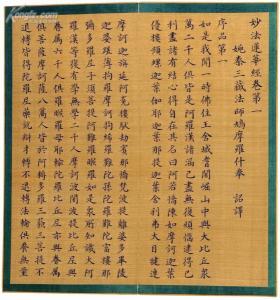 妙法蓮華經卷第一
姚秦三藏法師鳩摩羅什奉 詔譯
序品第一
如是我聞一時佛住王舍城耆闍崛山中與大比丘衆
萬二千人俱皆是阿羅漢諸漏已盡無復煩惱逮得己
利盡諸有結心得自在其名曰阿若憍陳如摩訶迦葉
優樓頻螺迦葉伽耶迦葉那提迦葉舍利弗大目揵連
摩訶迦旃延阿㝹樓馱劫賓那憍梵波提離婆多畢陵
伽婆蹉薄拘羅摩訶拘絺羅難陀孫陀羅難陀富樓那
彌多羅尼子須菩提阿難羅睺羅如是衆所知識大阿
羅漢等復有學無學二千人摩訶波闍波提比丘尼與
眷屬六千人俱羅睺羅母耶輸陀羅比丘尼亦與眷屬
俱菩薩摩訶薩八萬人皆於阿耨多羅三藐三菩提不
退轉皆得陀羅尼樂說辯才轉不退轉法輪供養無量